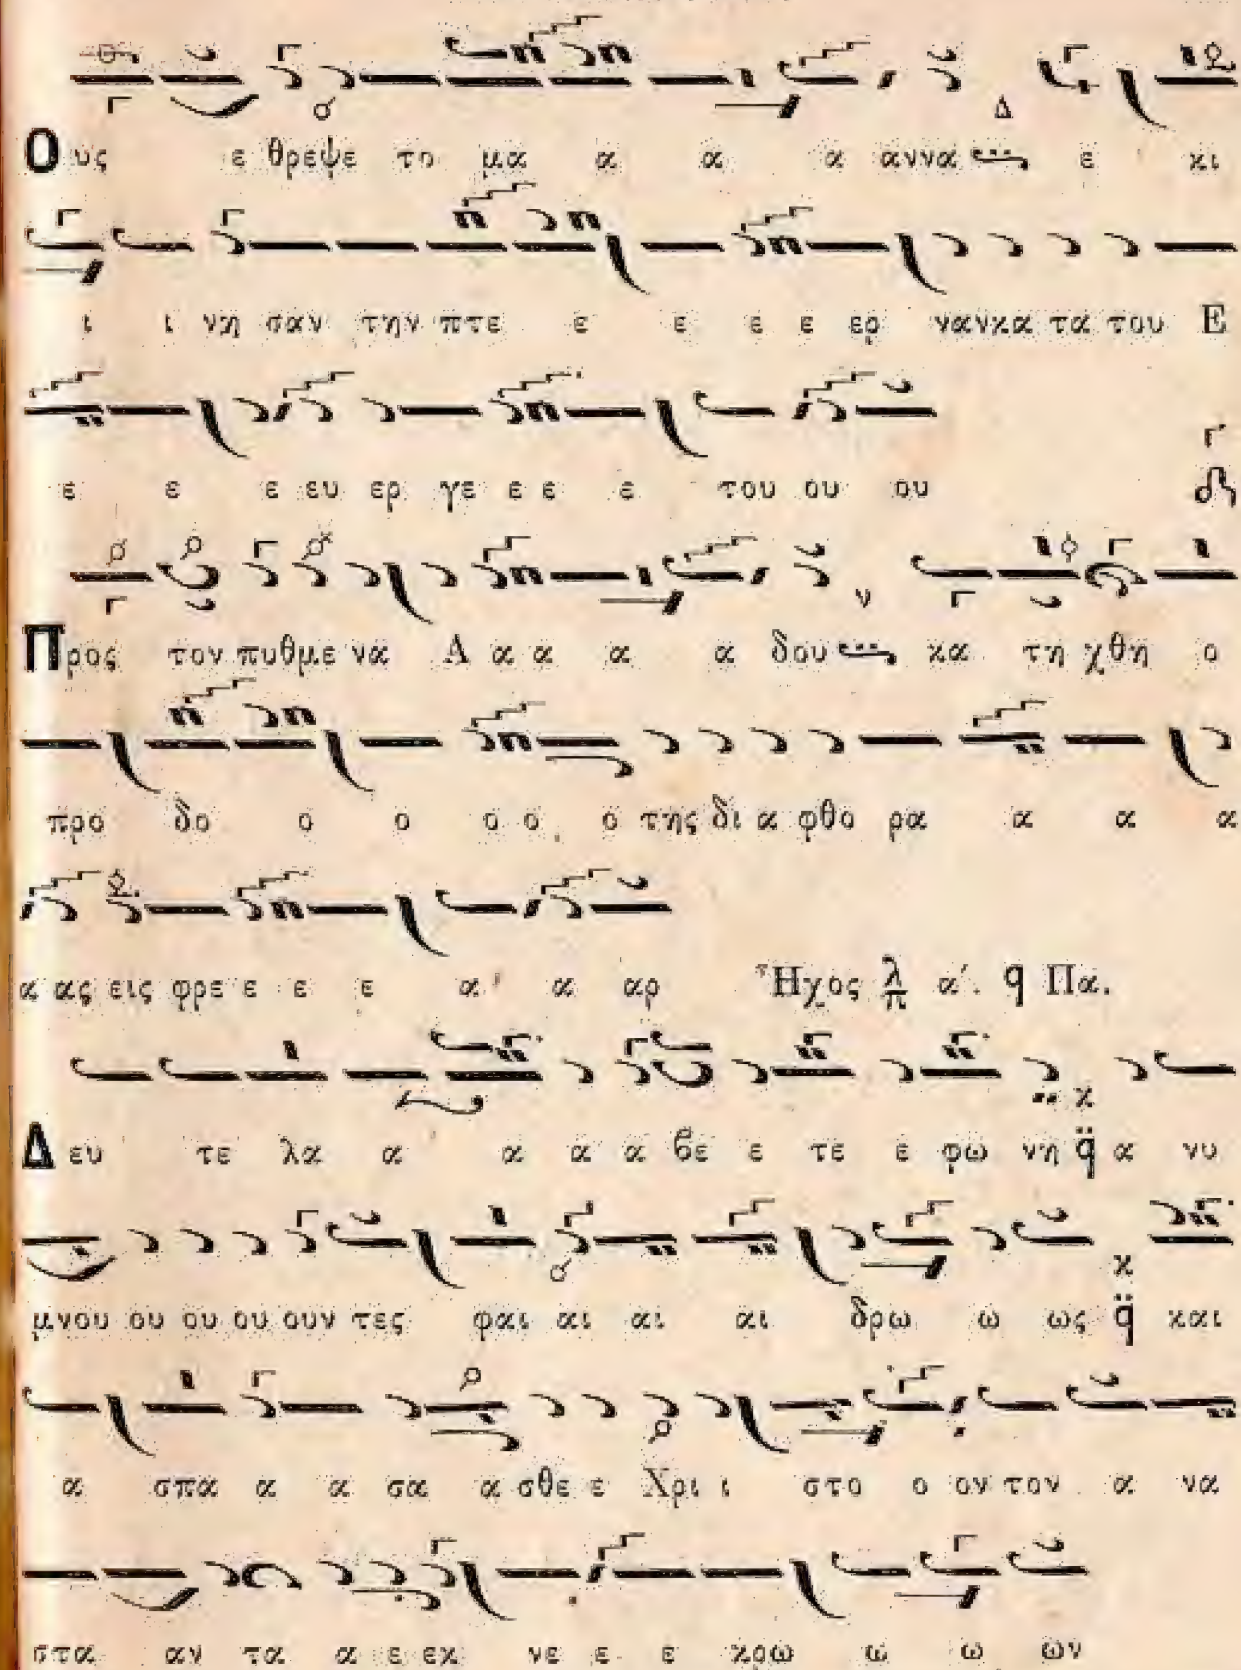 Ους ε θρεψε το μα α α α αννα ε κι
ι ι νη σαν την πτε ε ε ε ε ερ ναν κα τα του Ε
ε ε ε ευ ερ γε ε ε ε του ου ου
Προς τον πυθμε να Α α α α α δου κα τη χθη ο
προ δο ο ο ο ο ο της δι α φθο ρα α α α
α ας εις φρε ε ε ε α α αρ Ἦχος λ π α΄. q Πα.
Δευ τε λα α α α α βε ε τε ε φω νη q α νυ
μνου ου ου ου ουν τες φαι αι αι αι δρω ω ως q και
α σπα α α σα α σθε ε Χρι ι στο ο ον τον α να
στα αν τα α ε εκ νε ε ε κρω ω ω ων